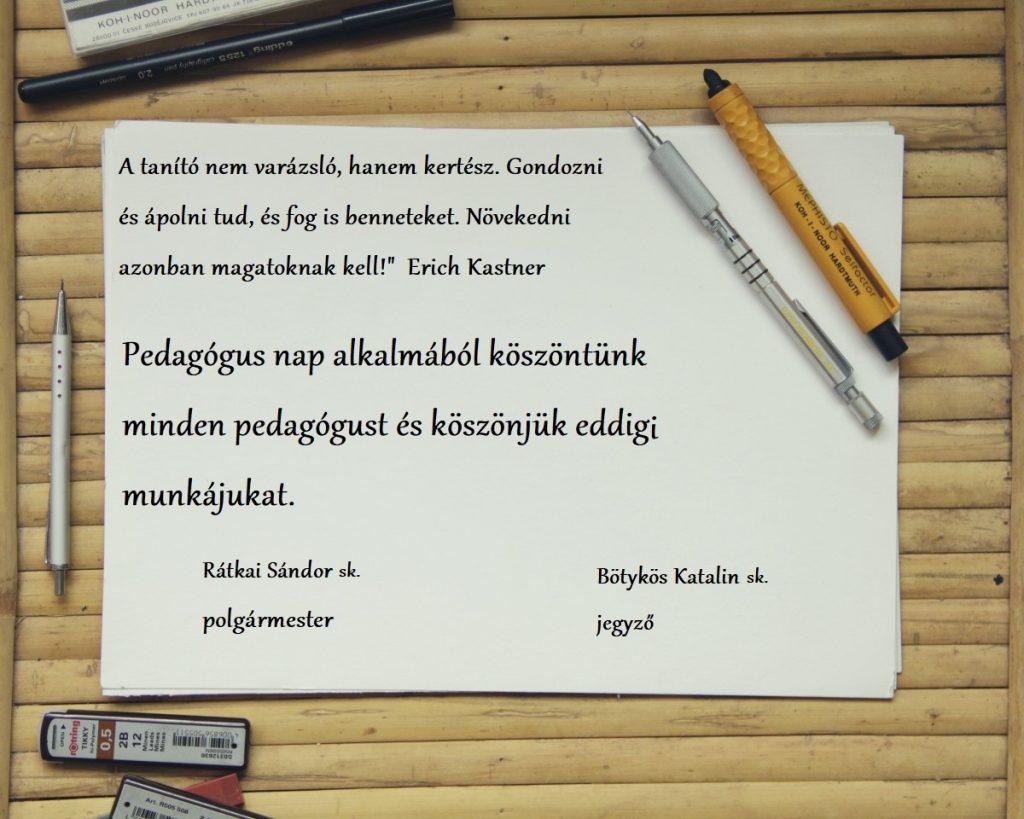 KOH-I-NOOR HARDT
edding 1255 calligraphy pen 2.0
A tanító nem varázsló, hanem kertész. Gondozni
és ápolni tud, és fog is benneteket. Növekedni
azonban magatoknak kell!" Erich Kastner
MEPHISTO Selfractor
KOH-I-NOOR HARDTMUTH
Pedagógus nap alkalmából köszöntünk
minden pedagógust és köszönjük eddigi
munkájukat.
Rátkai Sándor sk.
polgármester
Bötykös Katalin sk.
jegyző
OPEN
rotring
TIKKY
Hi-Polymer
0,5
2B
12
Minen
Leads
Mines
Minas